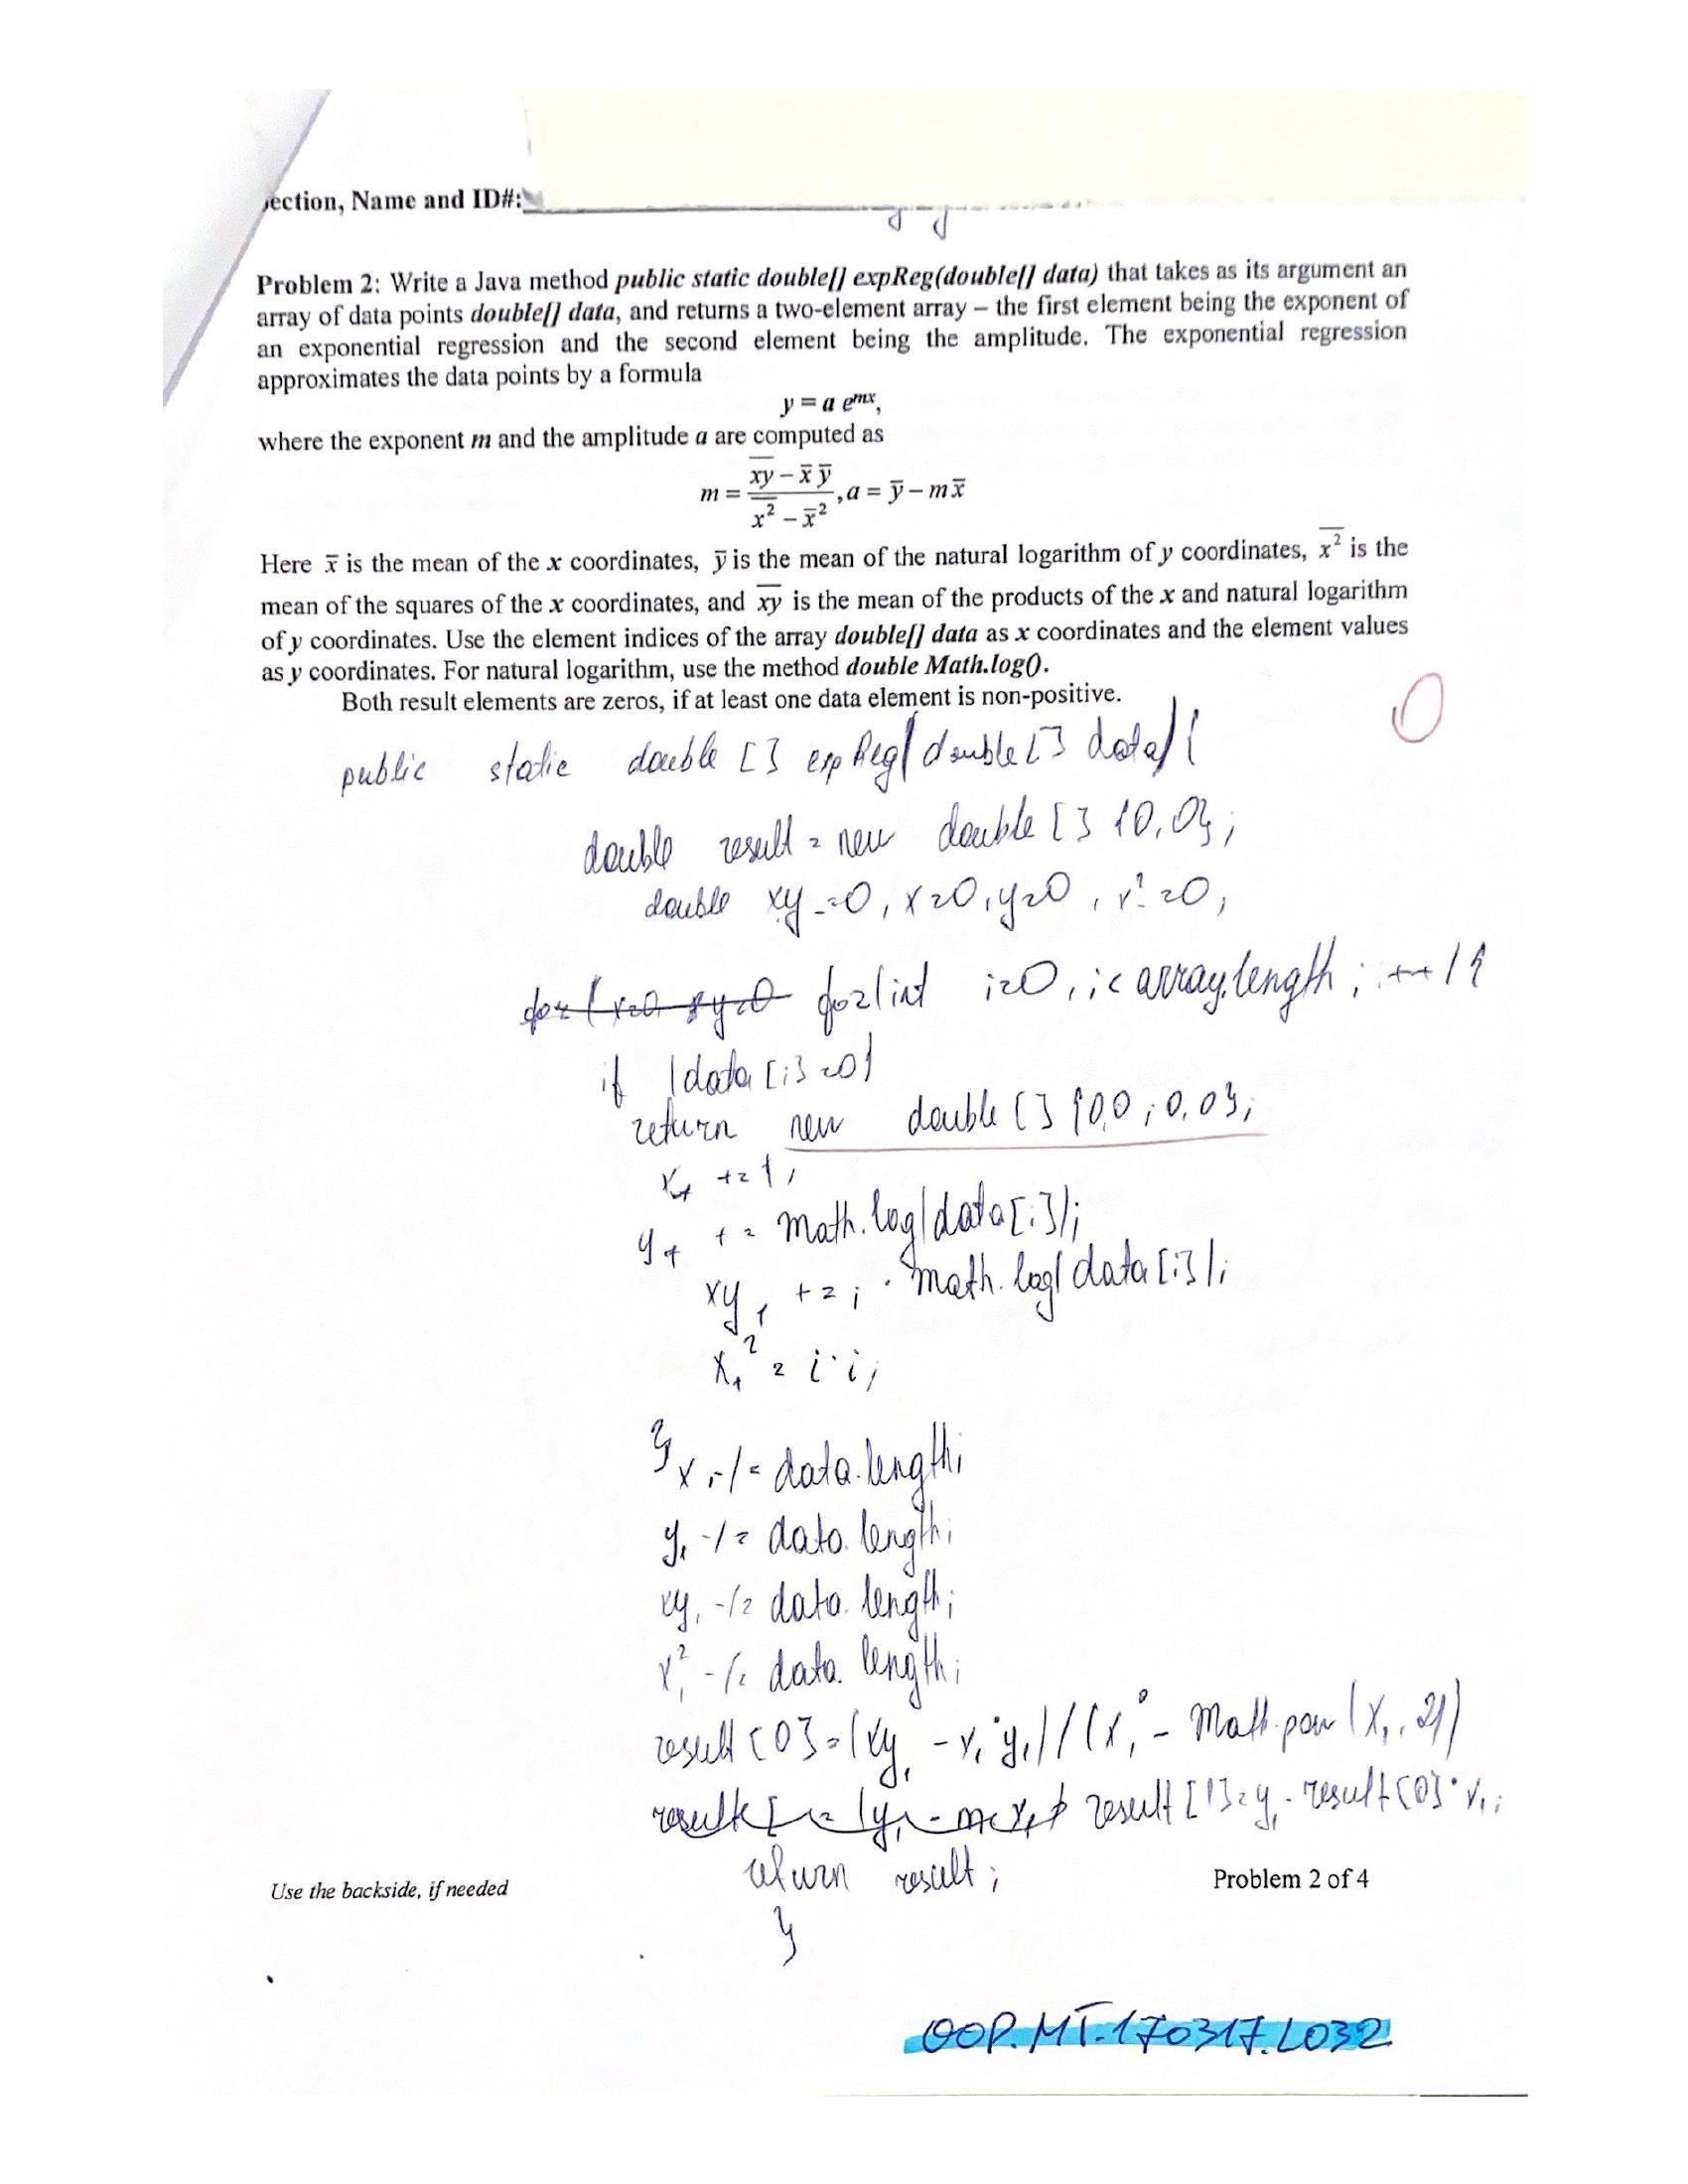 ection, Name and ID#:
Problem 2: Write a Java method public static double[] expReg(double[] data) that takes as its argument an
array of data points double[] data, and returns a two-element array – the first element being the exponent of
an exponential regression and the second element being the amplitude. The exponential regression
approximates the data points by a formula
y = a e^{mx},
where the exponent m and the amplitude a are computed as
m = \frac{\overline{xy} - \bar{x}\,\bar{y}}{\overline{x^2} - \bar{x}^2}, a = \bar{y} - m\bar{x}
Here x̄ is the mean of the x coordinates, ȳ is the mean of the natural logarithm of y coordinates, \overline{x^2} is the
mean of the squares of the x coordinates, and \overline{xy} is the mean of the products of the x and natural logarithm
of y coordinates. Use the element indices of the array double[] data as x coordinates and the element values
as y coordinates. For natural logarithm, use the method double Math.log().
Both result elements are zeros, if at least one data element is non-positive.
0
public static double [] expReg(double[] data){
double result = new double [] {0,0};
double xy_=0, x=0, y=0, x²=0,
for(int i=0, i< array.length; ++){
if (data[i] =0)
return new double [] {0,0 ; 0,0};
x₁ += 1;
y₁ += math.log(data[i]);
xy₁ += i · math.log(data[i]);
x₁² = i·i;
}
x₁ -/= data.length;
y₁ -/= data.length;
xy₁ -/= data.length;
x₁² -/= data.length;
result [0] = (xy₁ - x₁·y₁) / (x₁² - Math.pow(x₁, 2))
result [1] = y₁ - result[0]·x₁;
return result;
}
Use the backside, if needed
Problem 2 of 4
OOP.MT.170317.L032